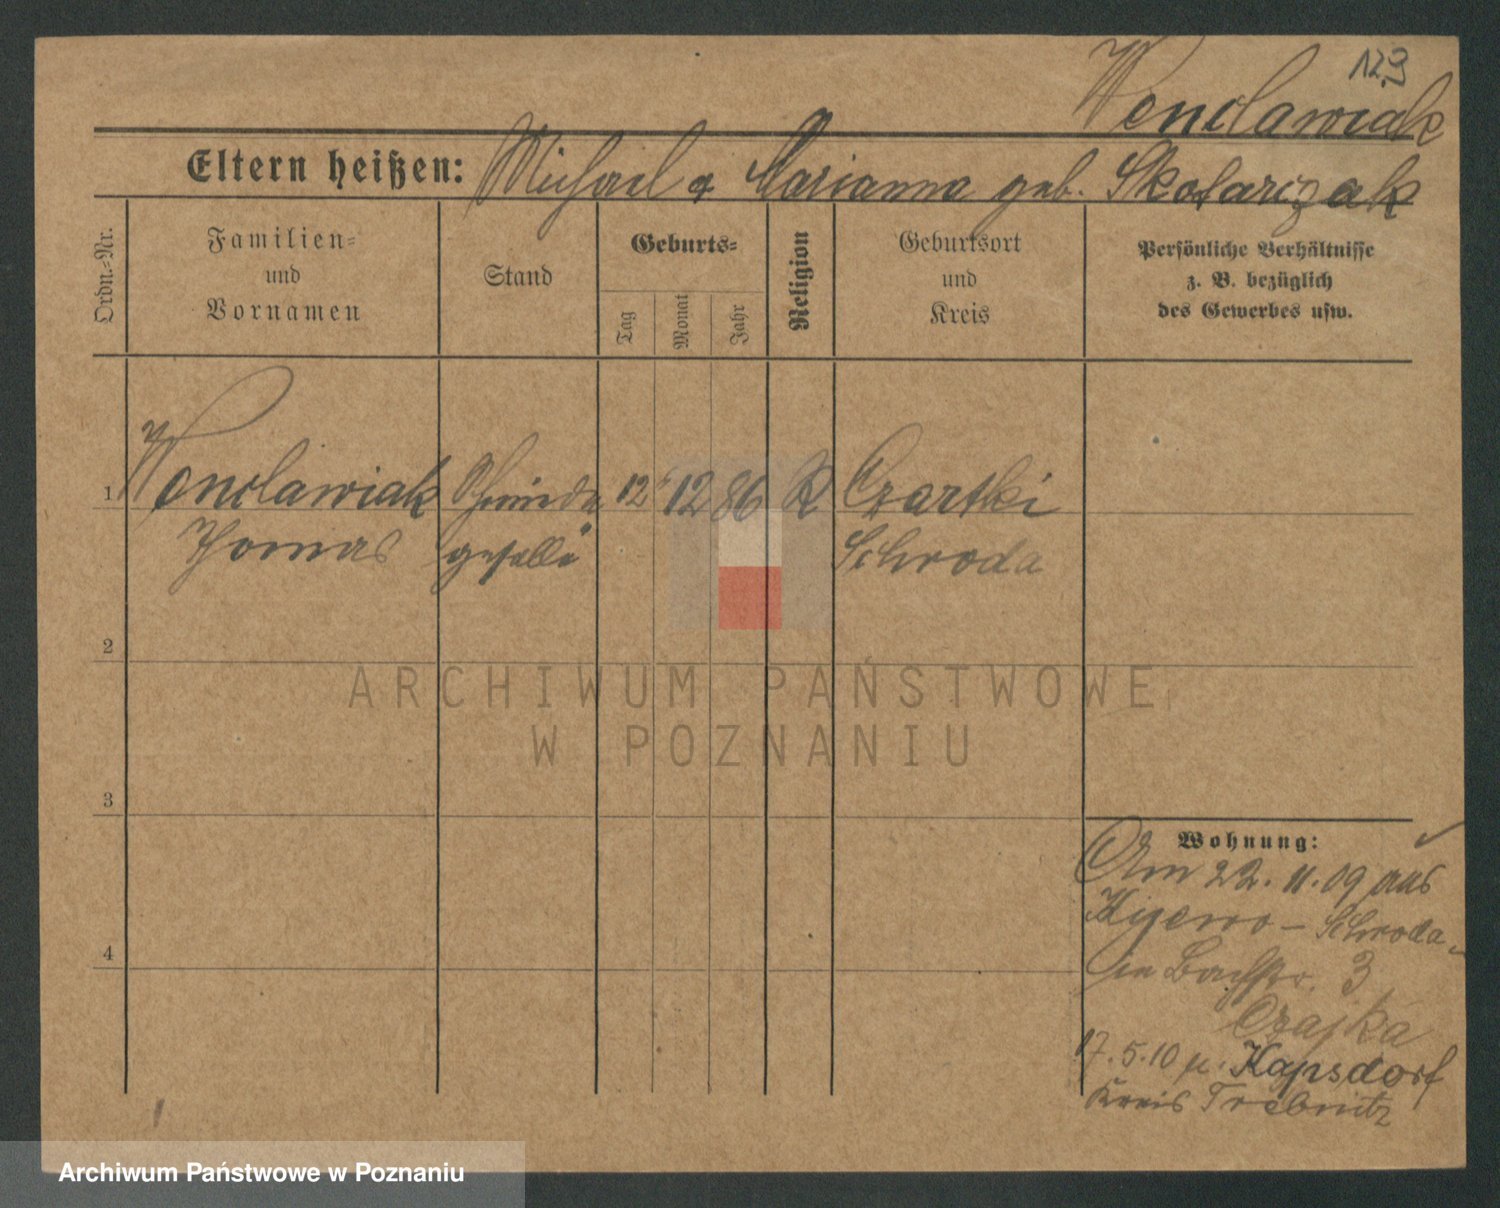 129
Wenclawiak
Eltern heißen: Michael & Marianna geb. Skotarczak
Ordn.-Nr.
Familien-
und
Vornamen
Stand
Geburts-
Tag
Monat
Jahr
Religion
Geburtsort
und
Kreis
Persönliche Verhältnisse
z. B. bezüglich
des Gewerbes usw.
1 Wenclawiak 12 12 86 K Czartki
Thomas geselle Schroda
2
3
4
ARCHIWUM PAŃSTWOWE
W POZNANIU
Wohnung:
Am 22. 11. 09 aus
Kijewo - Schroda
in Bachstr. 3
Czajka
17. 5. 10 n. Kapsdorf
Kreis Trebnitz
Archiwum Państwowe w Poznaniu